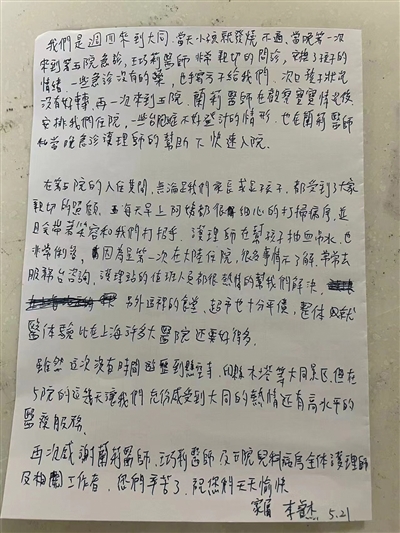 我們是週四來到大同,當天小孩就發燒不適,當晚第一次
來到第五院急診,王巧莉醫師非常親切的問診,安撫了孩子的
情緒,一些急診沒有的藥,也手寫了給我們,次日孩子狀況
沒有好轉,再一次來到五院,蘭莉醫師在觀察寶寶情況後,
安排我們住院,一些台胞證不好登計的情形,也在蘭莉醫師
和當晚急診護理師的幫助下快速入院。
在第五院的入住其間,無論是我們家長或是孩子,都受到大家
親切的照顧,每天早上阿姨都很細心的打掃病房,並
且常帶笑容和我們打招手,護理師在幫孩子抽血吊水,也
非常俐落,因為是第一次在大陸住院,很多事情不了解,常常去
服務台咨詢,護理站的值班人員都很熱情的幫我們解決,
另外這裡的食堂,超市也十分平價,整体
醫体驗比在上海許多大醫院还要好得多。
雖然這次沒有時間遊覽到懸空寺,應縣木塔等大同景区,但在
5院的這幾天讓我們充份感受到大同的熱情还有高水平的
醫療服務。
再次感謝蘭莉醫師,王巧莉醫師及五院兒科病房全体護理師
及相關工作者,您們辛苦了,祝您們天天愉快
家屬 李 杰 5.21